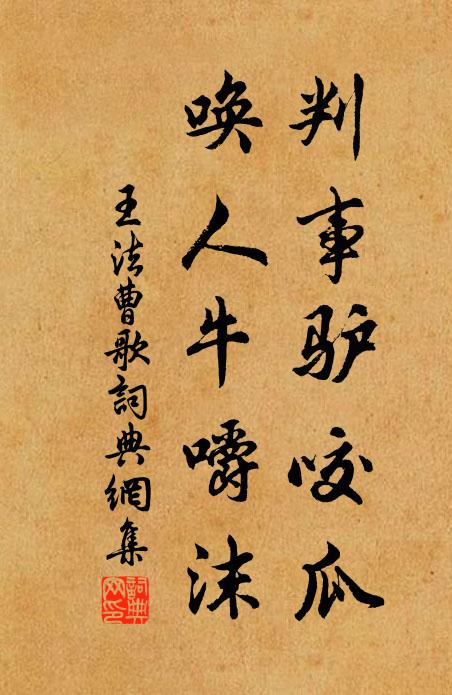 判事驴咬瓜
唤人牛嚼沫
王法曹歌詞典網集
詞典網印